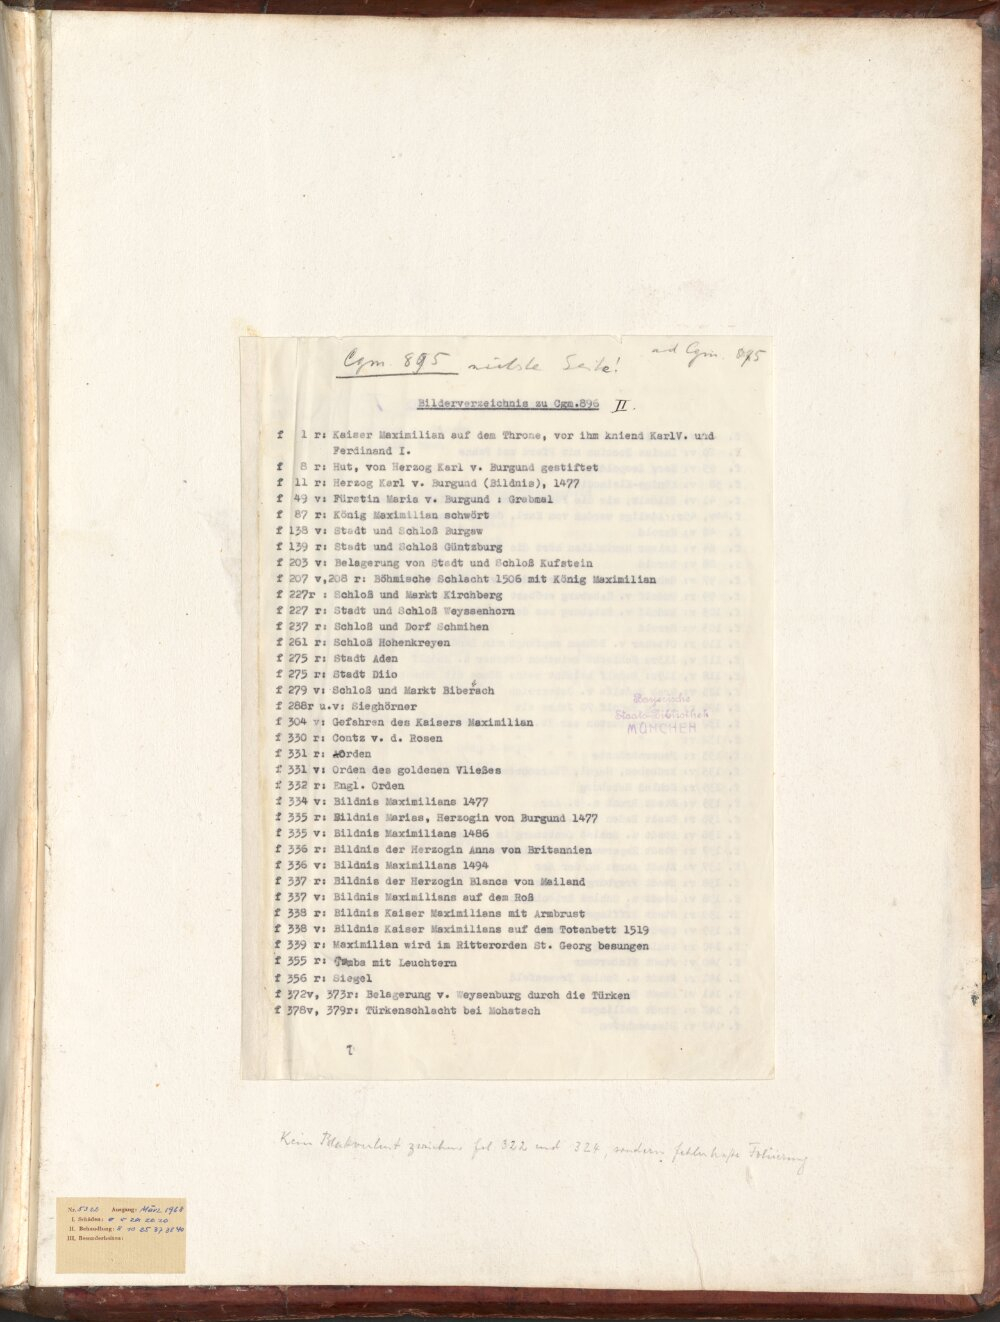 Cgm. 895 nächste Seite!
ad Cgm. 895
Bilderverzeichnis zu Cgm.896 II.
f 1 r: Kaiser Maximilian auf dem Throne, vor ihm kniend KarlV. und
Ferdinand I.
f 8 r: Hut, von Herzog Karl v. Burgund gestiftet
f 11 r: Herzog Karl v. Burgund (Bildnis), 1477
f 49 v: Fürstin Maria v. Burgund : Grabmal
f 87 r: König Maximilian schwört
f 138 v: Stadt und Schloß Burgaw
f 139 r: Stadt und Schloß Güntzburg
f 203 v: Belagerung von Stadt und Schloß Kufstein
f 207 v,208 r: Böhmische Schlacht 1506 mit König Maximilian
f 227r : Schloß und Markt Kirchberg
f 227 r: Stadt und Schloß Weyssenhorn
f 237 r: Schloß und Dorf Schmihen
f 261 r: Schloß Hohenkreyen
f 275 r: Stadt Aden
f 275 r: Stadt Diio
f 279 v: Schloß und Markt Biberach
f 288r u.v: Sieghörner
f 304 v: Gefahren des Kaisers Maximilian
f 330 r: Contz v. d. Rosen
f 331 r: Orden
f 331 v: Orden des goldenen Vließes
f 332 r: Engl. Orden
f 334 v: Bildnis Maximilians 1477
f 335 r: Bildnis Marias, Herzogin von Burgund 1477
f 335 v: Bildnis Maximilians 1486
f 336 r: Bildnis der Herzogin Anna von Britannien
f 336 v: Bildnis Maximilians 1494
f 337 r: Bildnis der Herzogin Blanca von Mailand
f 337 v: Bildnis Maximilians auf dem Roß
f 338 r: Bildnis Kaiser Maximilians mit Armbrust
f 338 v: Bildnis Kaiser Maximilians auf dem Totenbett 1519
f 339 r: Maximilian wird im Ritterorden St. Georg besungen
f 355 r: Tumba mit Leuchtern
f 356 r: Siegel
f 372v, 373r: Belagerung v. Weysenburg durch die Türken
f 378v, 379r: Türkenschlacht bei Mohatsch
Bayerische
Staats-Bibliothek
MÜNCHEN
Kein Blattverlust zwischen fol 322 und 324, sondern fehlerhafte Foliierung
Nr. Ausgang: März 1968
I. Schäden:
II. Behandlung:
III. Besonderheiten: